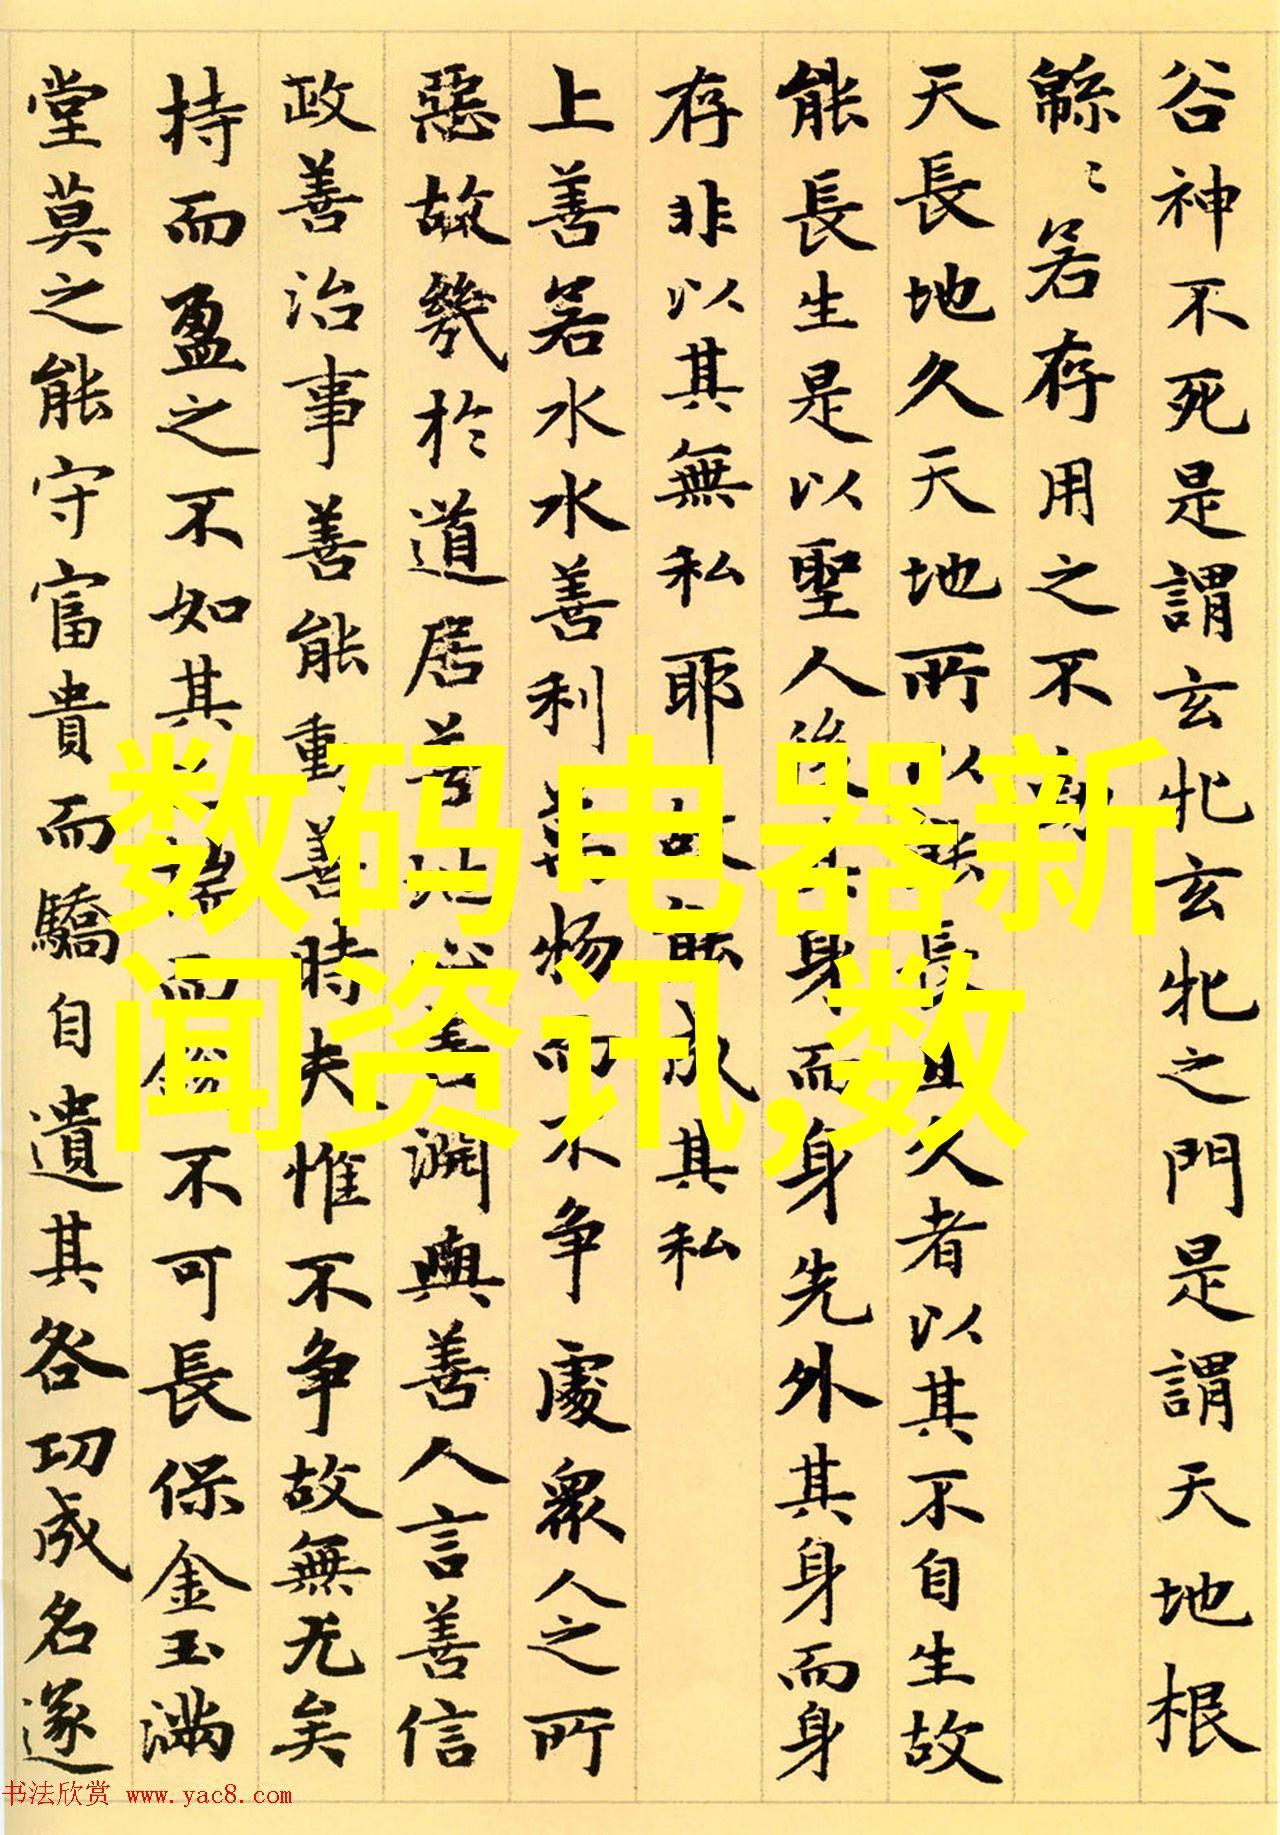 谷神不死是謂玄牝玄牝之門是謂天地根
緜〻若存用之不
天長地久天地所以能長且久者以其不自生故
能長生是以聖人後其身而身先外其身而身
存非以其無私耶故能成其私
上善若水水善利萬物而不争處衆人之所
惡故幾於道居善地心善渊與善人言善信
政善治事善能動善時夫惟不争故無尤矣
持而盈之不如其揣而鋭不可長保金玉滿
堂莫之能守富貴而驕自遺其咎功成名遂
数码电器新
闻资讯,数
书法欣赏 www.yac8.com